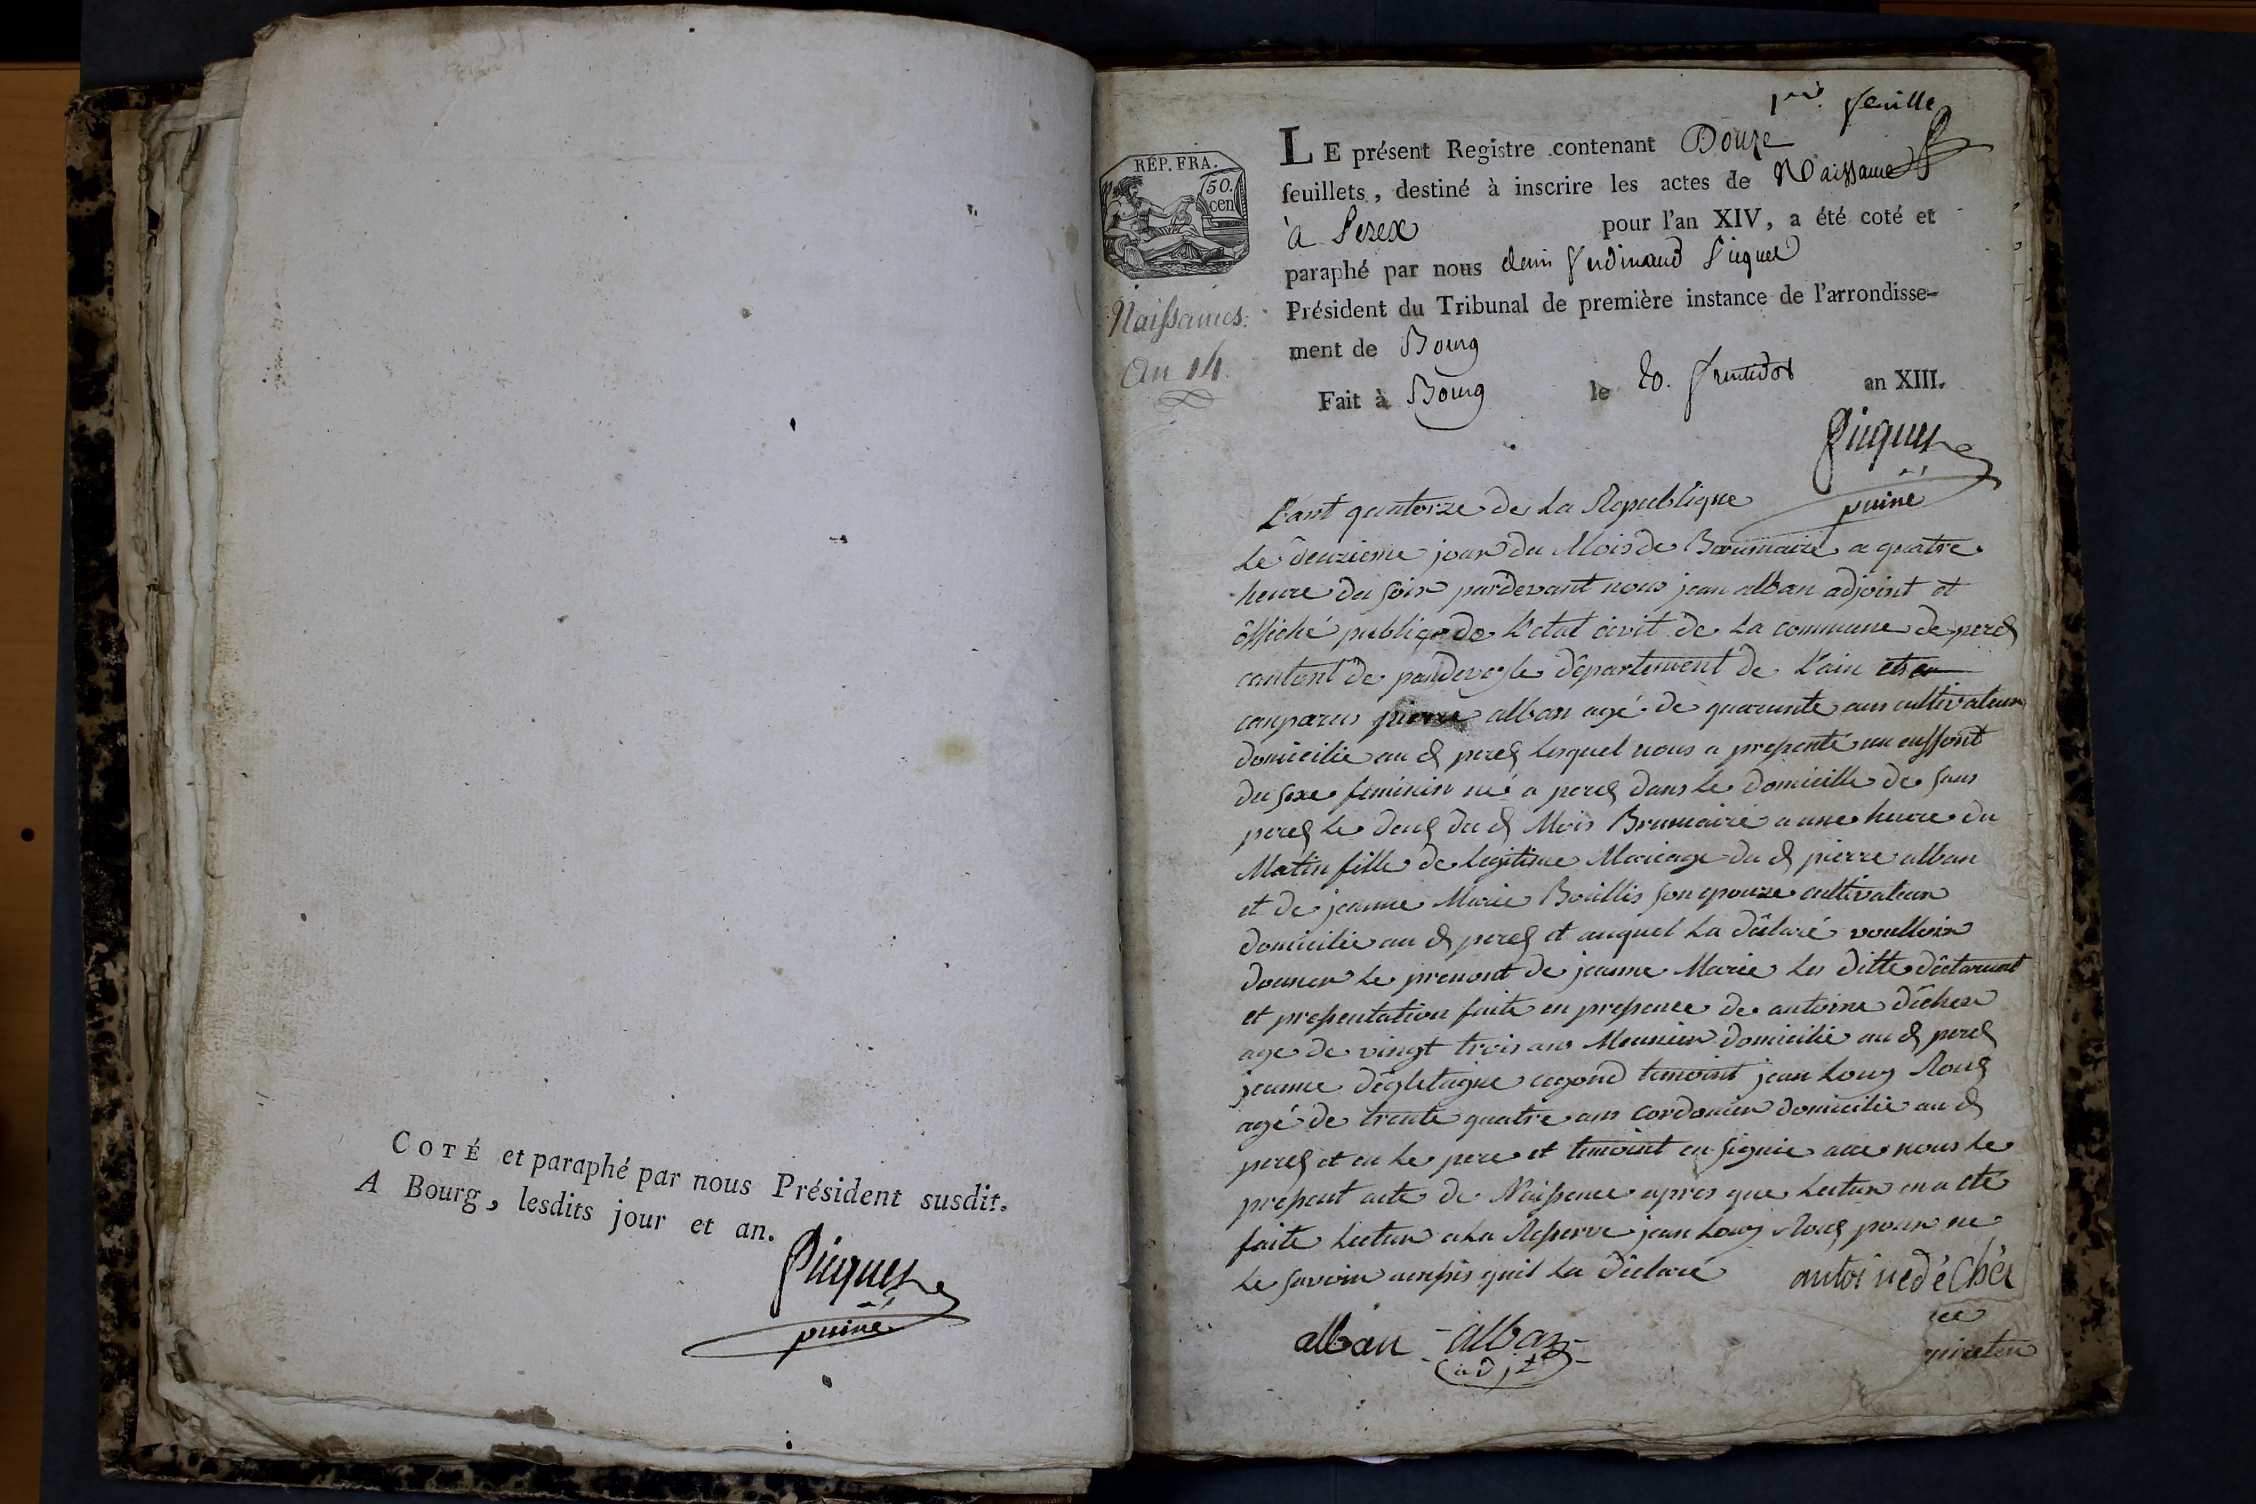 COTÉ et paraphé par nous Président susdit.
A Bourg, lesdits jour et an.
Picquet
puiné
RÉP. FRA.
50.
cen
Naissances.
An 14.
feuille
LE présent Registre contenant Douze
feuillets, destiné à inscrire les actes de Naissance
à Perex pour l'an XIV, a été coté et
paraphé par nous denis ferdinand Picquet
Président du Tribunal de première instance de l'arrondisse-
ment de Bourg
Fait à Bourg le 20. fructidor an XIII.
Picquet
puiné
L'ant quatorze de La Republique
Le deuzieme jour du Mois de Brumaire a quatre
heure du soir pardevant nous jean alban adjoint et
de L'etat civit de La commune de perex
cantont de pondevesle département de L'ain
conparus pierre alban agé de quarante ans cultivateur
domicilie au d perex Lesquel nous a presenté un enffont
du sexe feminin né a perex dans Le domicille de sous
perex Le deux du d Mois Brumaire a une heure du
Matin fille de Legitime Mariage du d pierre alban
et de jeanne Marie Bouillis son epouze cultivateur
domicilie au d perex et auquel La déclaré voulloir
donner Le prenont de jeanne Marie Les ditte déclarant
et presentation faite en presence de antoine décher
age de vingt trois ans Meunier domicilie au d perex
segond temoint jean Louy Roux
agé de trente quatre ans cordonier domicilie au d
perex et en Le pere et temoint en signie avec nous Le
present acte de Naissence apres que Lectur en a ete
faite Lectur a La Reserve jean Louy Roux pour ne
Le savoir quil La déclaré antoine déchér
alban alban
adjt